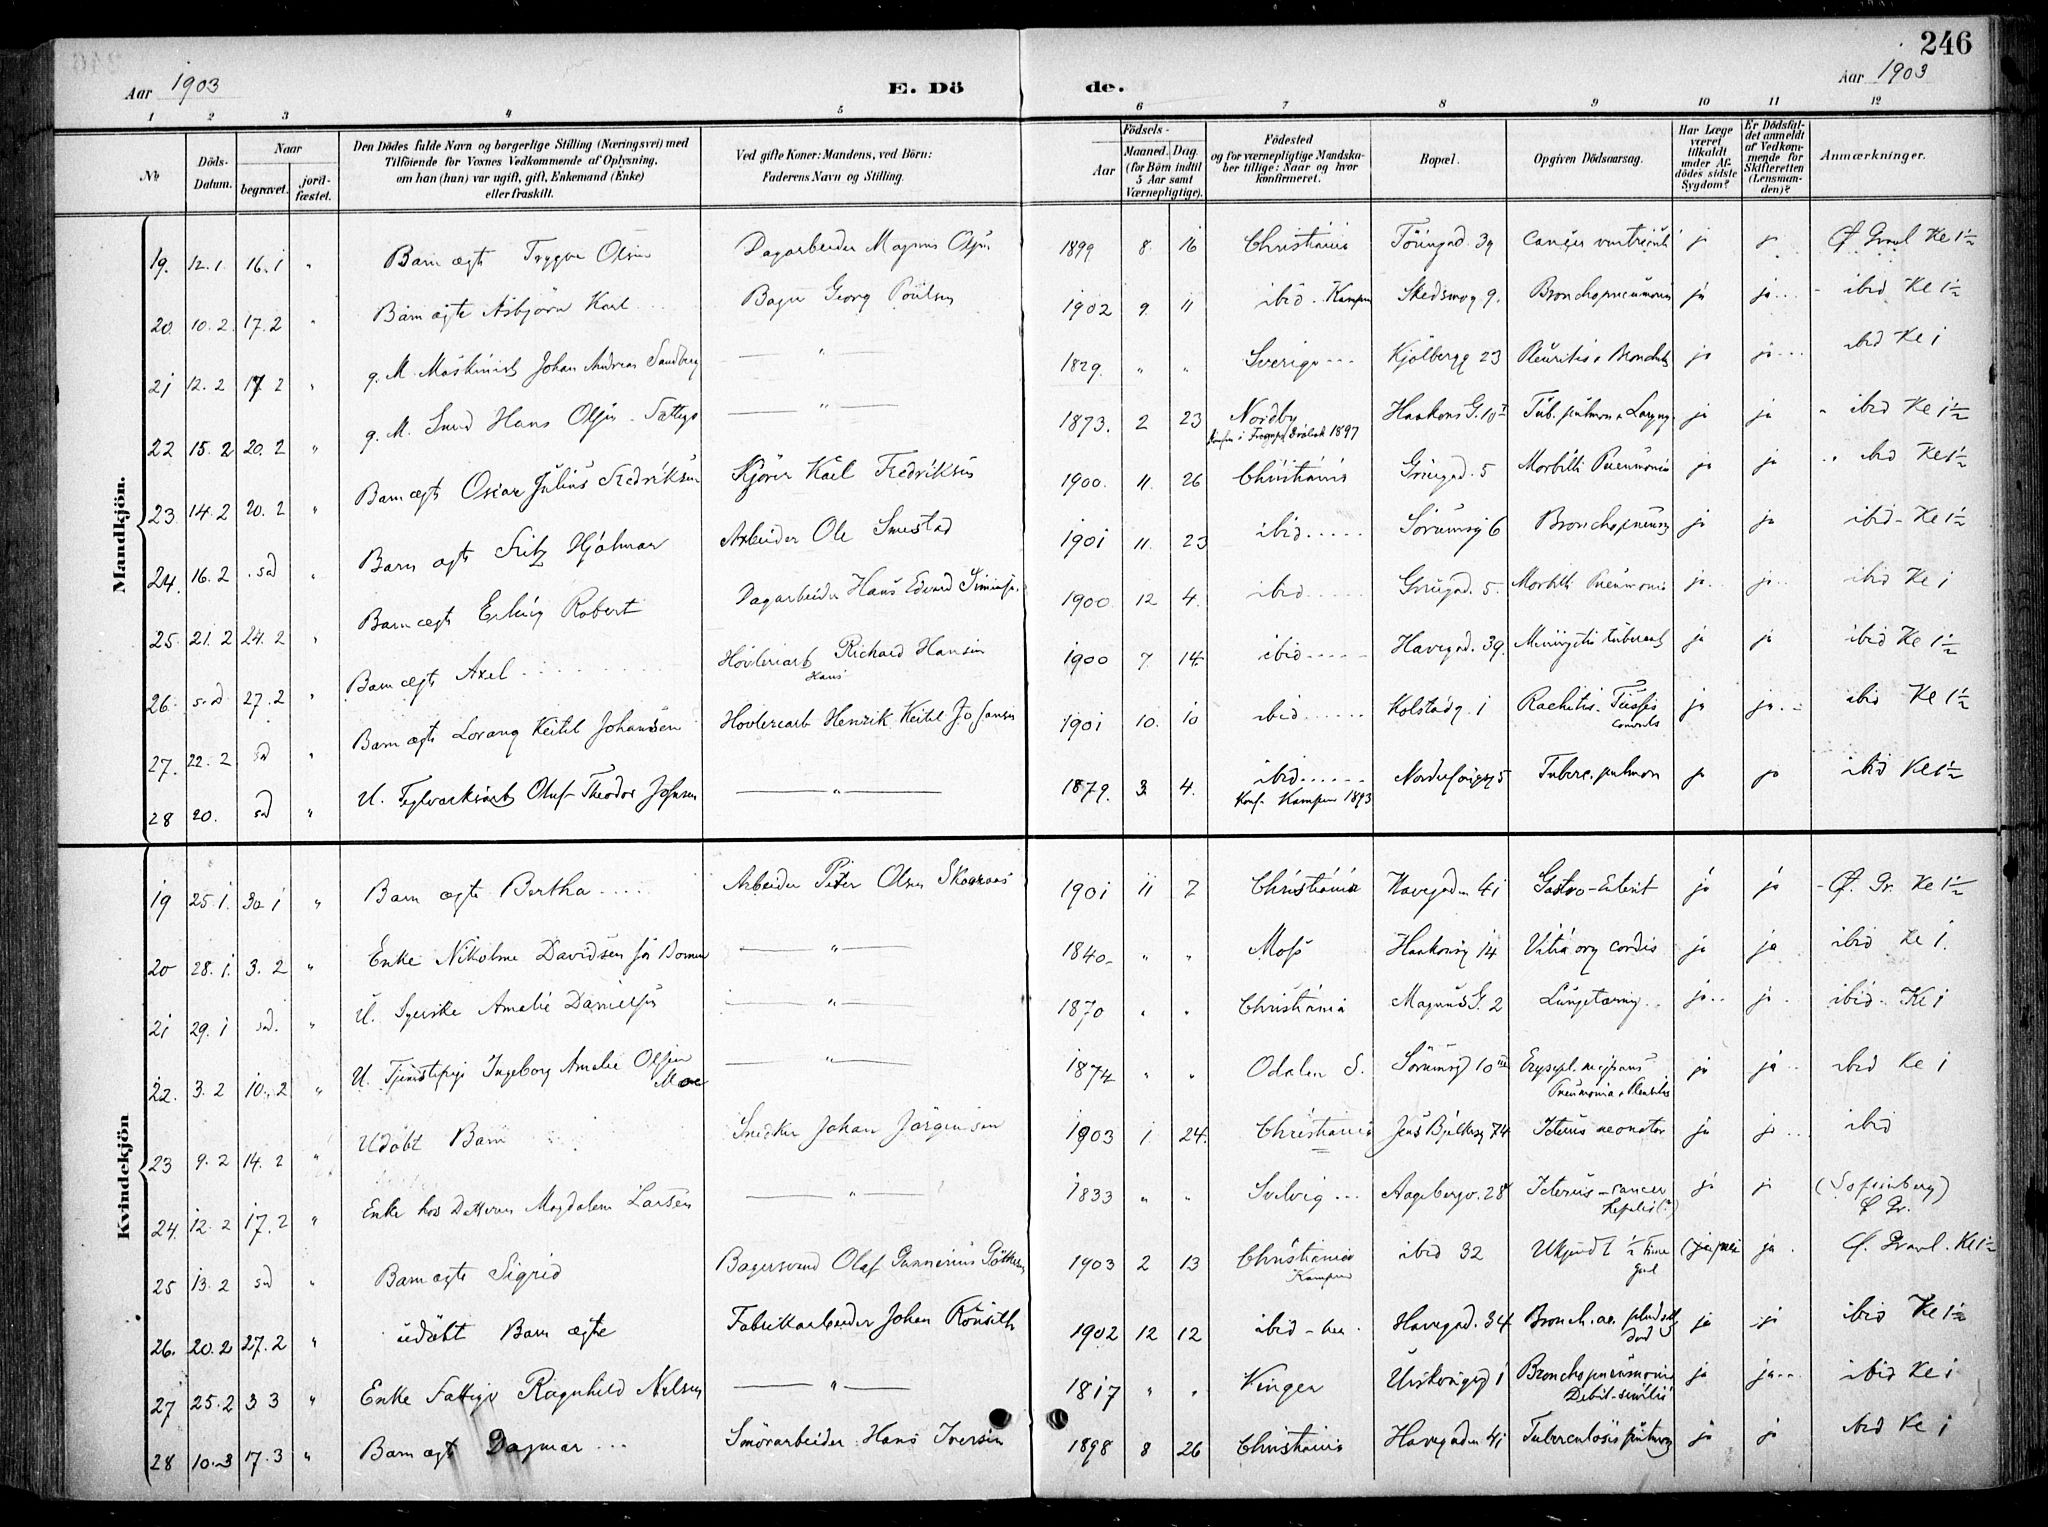 246
Aar 1903
E. Dö
de.
Aar 1903
1 2 3 4 5 6 7 8 9 10 11 12
No
Döds-Datum.
Naar
begravet.
jord-fæstet.
Den Dödes fulde Navn og borgerlige Stilling (Næringsvei) med
Tilföiende for Voxnes Vedkommende af Oplysning,
om han (hun) var ugift, gift, Enkemand (Enke)
eller fraskilt.
Ved gifte Koner: Mandens, ved Börn:
Faderens Navn og Stilling.
Födsels-
Aar
Maaned. Dag.
(for Börn indtil
5 Aar samt
Værnepligtige).
Födested
og for værnepligtige Mandska-
ber tillige: Naar og hvor
konfirmeret.
Bopæl.
Opgiven Dödsaarsag.
Har Læge
været
tilkaldt
under Af-
dödes sidste
Sygdom?
Er Dödsfal-
det anmeldt
af Vedkom-
mende for
Skifteretten
(Lensman-
den)?
Anmærkninger.
Mandkjön.
19. 12.1. 16.1 " Barn ægte Trygve Olsen Dagarbeider Magnus Olsen 1899 8. 16 Christiania 39 cancer ventriculi ja ja Ø. Gravl Ke 1½
20. 10.2. 17.2 " Barn ægte Asbjørn Karl Bager Georg Poulsen 1902 9. 11 ibid. Kampen Skedsmog 9. Bronchopneumoni ja ja ibid Ke 1½
21 12.2 17.2 " g. M. Maskinist Johan Andreas Sandberg " 1829. " " Sverige Kjølbergg 23 Pleuritis & Bronchitis ja ja ibid Ke 1
22 15.2 20.2 " g. M. Smed Hans Olsen Fattigv " 1873. 2 23 Nordby
1897 Haakons G. 10 Tub. pulmon & Laryng. ja ja " ibid Ke 1½
23. 14.2 20.2 " Barn ægte Oscar Julius Fredriksen Kjører Karl Fredriksen 1900. 11. 26 Christiania Grüegad. 5 Morbilli Pneumonia ja ja ibid Ke 1½
24. 16.2 sad " Barn ægte Fritz Hjalmar Arbeider Ole Smestad 1901 11. 23 ibid Sörumsg 6 Bronchopneum ja ja ibid - Ke 1½
25. 21.2 24.2 " Barn ægte Erling Robert Dagarbeider Hans Edvard 1900 12 4. ibid Grüegad. 5. Morbilli Pneumonia ja ja ibid Ke 1
26. s.d 27.2 " Barn ægte Axel Høvleriarb Richard Hansen
Hans 1900 7. 14. ibid Havegad. 39. Meningitis tubercul ja ja ibid Ke 1½
27. 22.2 sd " Barn ægte Lorang Keitel Johansen Høvleriarb Henrik Keitel Johansen 1901 10. 10 ibid Kolstadg. 1 Rachitis. Tussis
convuls ja ja ibid Ke 1½
28 20. sd " U. Teglverksarb Oluf Theodor Johnsen " 1879. 3. 4. ibid
Konf. Kampen 1893 5 Tuberc. pulmon ja ja ibid Ke 1½
Kvindekjön
19 25.1. 30.1 " Barn ægte Bertha Arbeider Peter Olsen 1901 11 7 Christiania Havegaden 41 Gastro-Enterit ja ja Ø. Gr. Ke 1½
20 28.1. 3.2 " Enke Nikoline Davidsen " 1840 " " Moss Haakonsg 14 Vitia org cordis ja ja ibid Ke 1.
21 29.1 sd. " U. Syerske Amalie Danielsen " 1870 " " Christiania Magnus G. 2 Lungetæring ja ja ibid. Ke 1
22. 3.2 10.2 " U. Tjenestepige Ingeborg Amalie Olsen
Moe " 1874 " " Odalen S. Sörumsg 10 Erysipel.
Pneumonia & Pleuritis ja ja ibid Ke 1
23 9.2 14.2 " Udøbt Barn Snedker Johan Jørgensen 1903 1 24. Christiania Jens Bjelkesg 74 Icterus neonator ja ja ibid
24. 12.2 17.2 " Enke hos Datteren Magdalene Larsen " 1833 " " Svelvig Aagebergv. 28 Icterus - cancer
hepatis (?) ja ja (Sofienberg)
Ø Gr.
25 13.2 sd " Barn ægte Sigrid Bagersvend Olaf Gunnerius 1903 2 13 Christiania
Kampen ibid 32 Ukjendt ½ Time
gml ja Ø. Gravl. Ke 1½
26. 20.2 27.2 " udøbt Barn ægte Fabrikarbeider Johan 1902 12 12 ibid - her Havegad. 34 Bronch. ac.
Død ja ja ibid Ke 1½
27 25.2 3 3 " Enke Fattigv Ragnhild Nilsen " 1817 " " Vinger Urskougsg 1 Bronchopneumoni
Debil. senilis ja ja ibid Ke 1
28 10.3 17.3 " Barn ægte Dagmar Smörarbeider Hans Iversen 1898 8 26 Christiania Havegaden 41 Tuberculosis pulmon ja ja ibid Ke 1